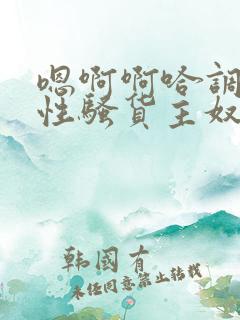 嗯啊啊哈調
性騷货主奴
韩国有
未经同意禁止转载